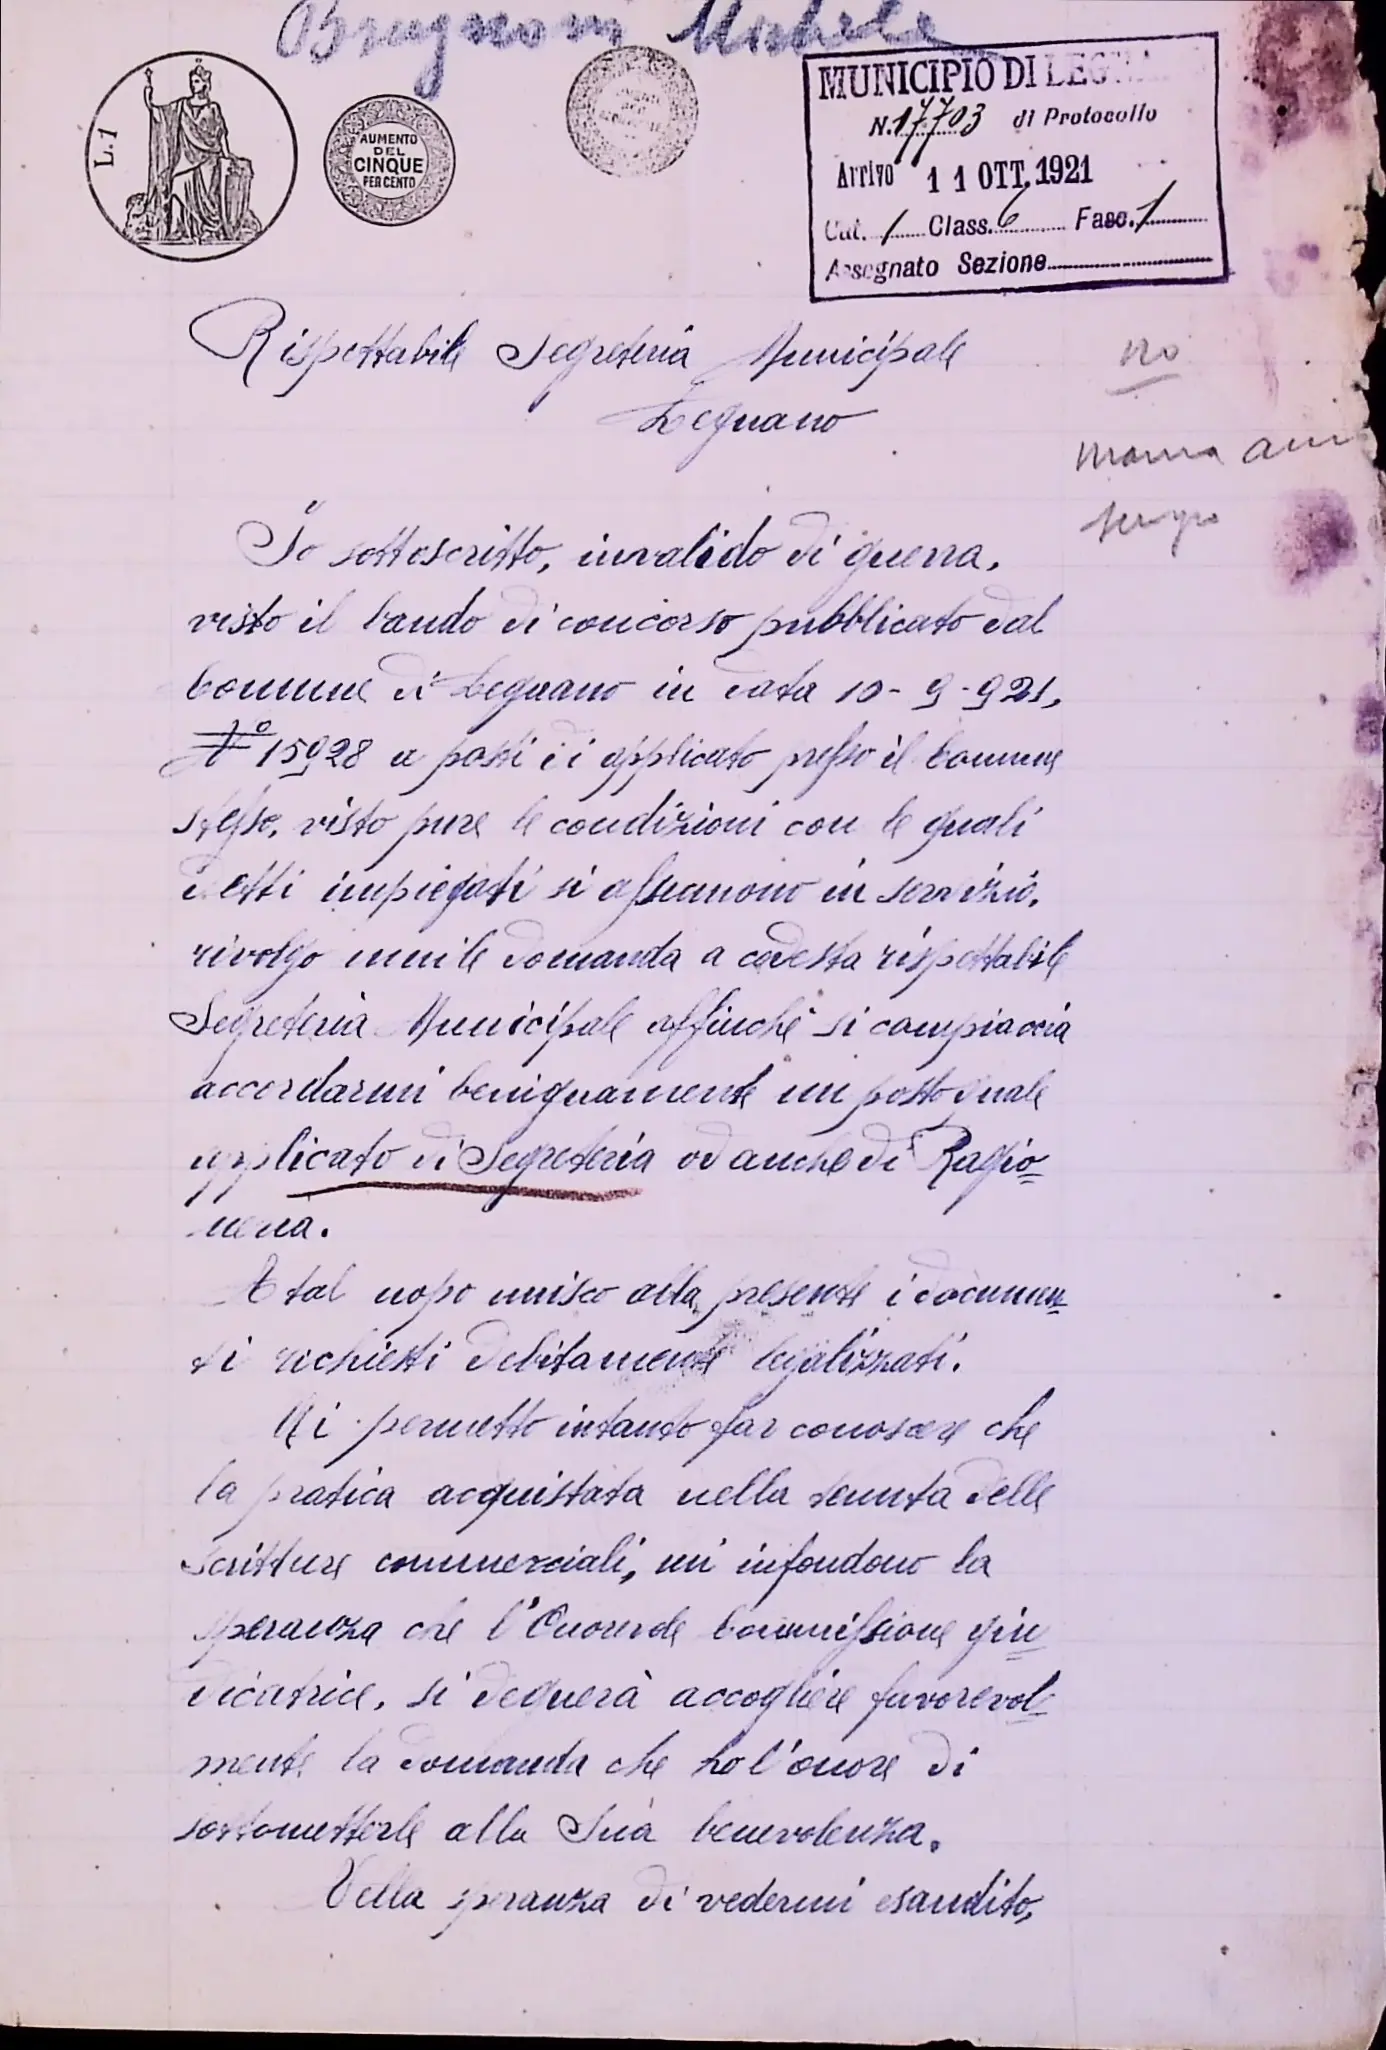 Brugnoni Michele
L.1
AUMENTO
DEL
CINQUE
PER CENTO
MUNICIPIO DI LEGNA
N. 17703 di Protocollo
Arrivo 11 OTT. 1921
Cat. 1 Class. 6 Fasc. 1
Assegnato Sezione
Rispettabile Segreteria Municipale
Legnano
no
Io sottoscritto, invalido di guerra,
visto il bando di concorso pubblicato dal
Comune di Legnano in data 10-9-921,
N° 15928 a posti di applicato presso il Comune
stesso, visto pure le condizioni con le quali
detti impiegati si assumono in servizio,
rivolgo umile domanda a codesta rispettabile
Segreteria Municipale affinchè si compiaccia
accordarmi benignamente un posto quale
applicato di Segreteria od anche di Ragio=
neria.
A tal uopo unisco alla presente i documen=
ti richiesti debitamente legalizzati.
Mi permetto intanto far conoscere che
la pratica acquistata nella tenuta delle
scritture commerciali, mi infondono la
speranza che l'Onorevole Commissione giu=
dicatrice, si degnerà accogliere favorevol=
mente la domanda che ho l'onore di
sottometterle alla Sua benevolenza.
Nella speranza di vedermi esaudito,